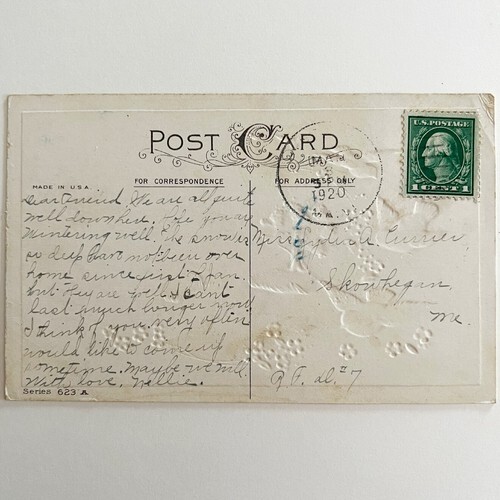 POST CARD
FOR CORRESPONDENCE
FOR ADDRESS ONLY
MADE IN U.S.A.
Dear Friend, We are all quite
well down here. Hope you are
Wintering well. The snow is
so deep have not been over
home since first of Jan.
but they are well. It can't
last much longer now.
I think of you very often
would like to come up
sometime. Maybe we will.
With love, Nellie.
Series 623 A
MAR
1920
U.S. POSTAGE
1 CENT 1
Currier,
Skowhegan,
Me.
R.F.D. #7